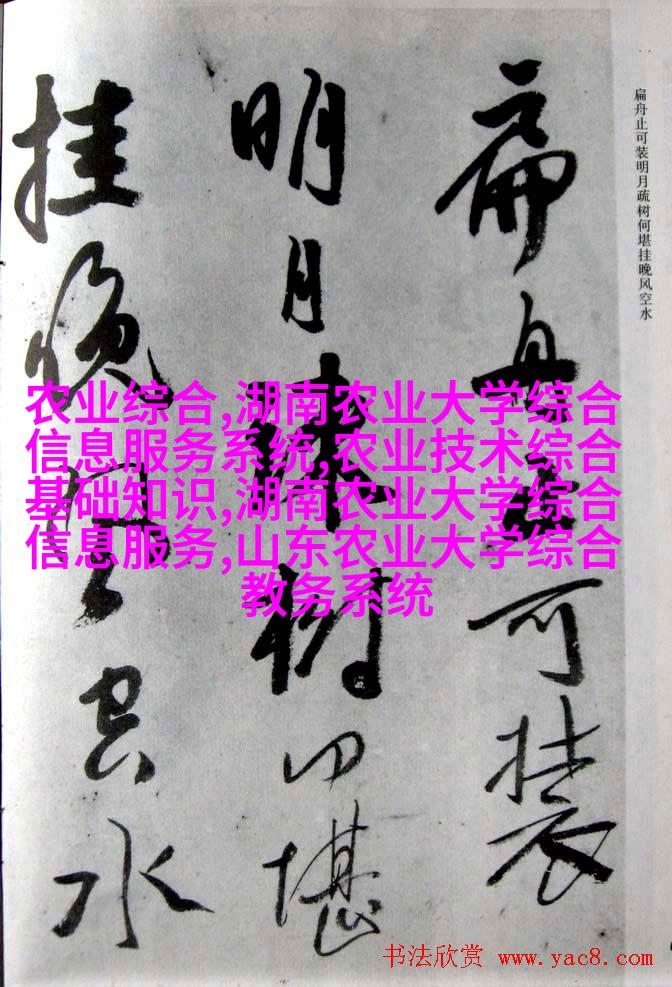 扁舟止可装
明月疏树何堪
挂晚风空水
扁舟止可装明月疏树何堪挂晚风空水
农业综合,湖南农业大学综合
信息服务系统,农业技术综合
基础知识,湖南农业大学综合
信息服务,山东农业大学综合
教务系统
书法欣赏 www.yac8.com